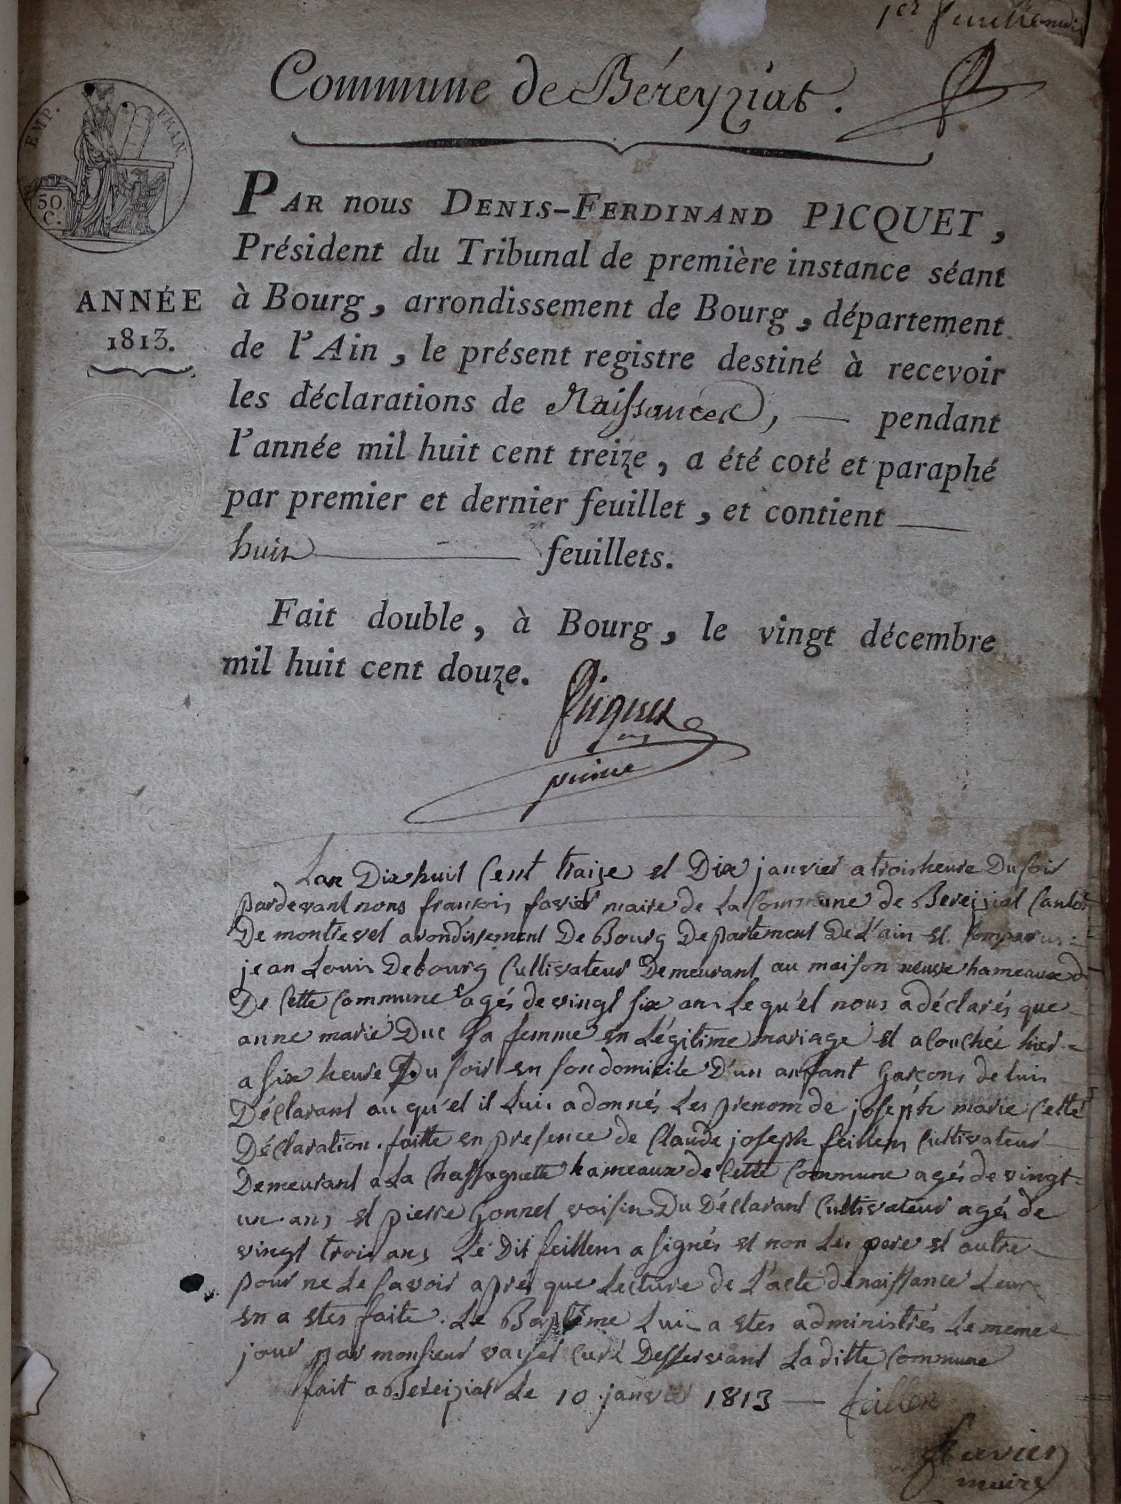 1er feuillet
Commune de Béreyziat.
EMP. FRAN.
50
C.
PAR nous DENIS-FERDINAND PICQUET,
Président du Tribunal de première instance séant
ANNÉE
1813.
à Bourg, arrondissement de Bourg, département
de l'Ain, le présent registre destiné à recevoir
les déclarations de Naissances, — pendant
l'année mil huit cent treize, a été coté et paraphé
par premier et dernier feuillet, et contient —
huit — feuillets.
Fait double, à Bourg, le vingt décembre
mil huit cent douze.
Picquet
Lan Dix huit Cent traize et Dix janvier a trois heure Du soir
pardevant nous francois favier maire de La Commune de Bereiziat Canton
De montrevel arondissement De Bourg Departement De L'ain est Comparus
jean Louis Debourg Cultivateur Demeurant au maison neuve hameaux
De Cette Commune agés de vingt six ans Lequ'el nous a déclarés que
anne marie Duc Sa femme en Légitime mariage et acouchée hier
a six heure Du soir en son domicile D'un anfant Garçons de luis
Déclarant auqu'el il Luis a donnés Les prenom de joseph marie Cette
Déclaration faitte en presence de Claude joseph feillens Cultivateur
Demeurant a La Chassagnette hameaux de Cette Commune agés de vingt
un ans et pierre Gonnet voisin Du Déclarant Cultivateur agés de
vingt trois ans Le Dit feillens a signés et non Les pere et autre
pour ne Le savoir aprés que Lecture de L'acte de naissance Leur
en a etes faite. Le Baptême Luis a etes administrés Le meme
jour par monsieur curé Desservant La ditte Commune
fait a Bereiziat Le 10 janvier 1813 — feillens
favier
maire